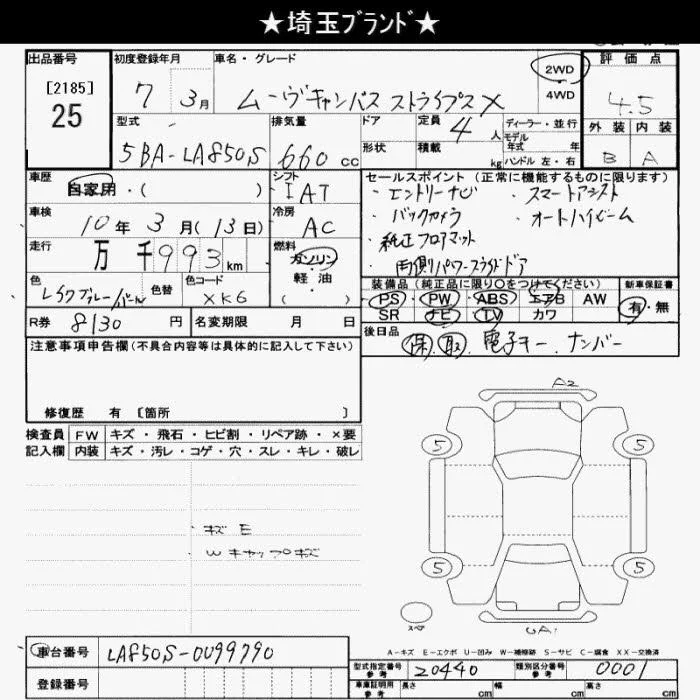 ★埼玉ﾌﾞﾗﾝﾄﾞ★
出品番号
[2185]
25
初度登録年月
7 3月
車名・グレード
ムーヴキャンバス ストライプス X
2WD
4WD
評価点
4.5
外装 内装
B A
型式
5BA-LA850S
排気量
660 cc
ドア
形状
定員
4 人
積載
kg
ディーラー・並行
モデル
年式 年
ハンドル 左・右
車歴
自家用・( )
シフト
IAT
車検
10年 3月(13日)
冷房
AC
走行
万 千993km
燃料
ガソリン
軽油
( )
色
色替
色コード
XK6
R券
8130 円
名変期限 月 日
セールスポイント (正常に機能するものに限ります)
・エントリーナビ ・スマートアシスト
・バックカメラ ・オートハイビーム
・純正フロアマット
・両側パワースライドドア
装備品(純正品に限り○をつけてください)
PS PW ABS エアB AW
SR ナビ TV カワ
新車保証書
有・無
後日品
保.取.電子キー.ナンバー
注意事項申告欄(不具合内容等は具体的に記入して下さい)
修復歴 有 [箇所 ]
検査員 FW キズ・飛石・ヒビ割・リペア跡・×要
記入欄 内装 キズ・汚レ・コゲ・穴・スレ・キレ・破レ
・キズ E
・W キャップキズ
A2
5
5
5
5
スペア
UA1
A-キズ E-エクボ U-凹み W-補修跡 S-サビ C-腐食 XX-交換済
車台番号
LA850S-0099790
登録番号
型式指定番号
参考
20440
類別区分番号
参考
0001
車庫証明用
参考
長さ cm
幅 cm
高さ cm